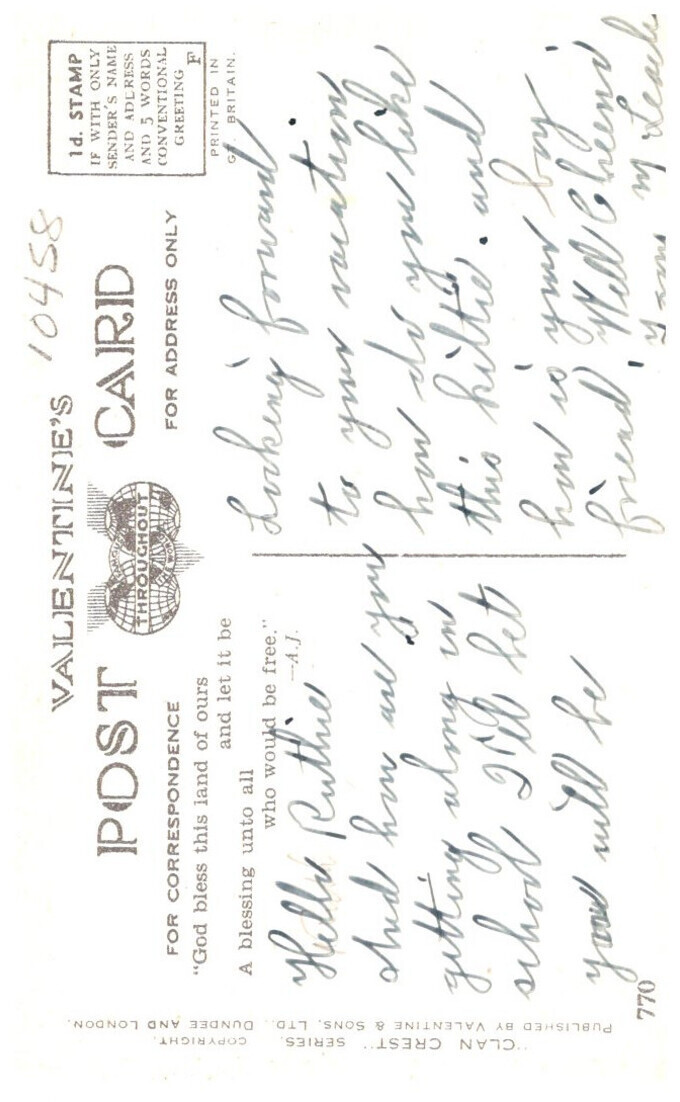 10458
VALENTINE'S
POST CARD
THROUGHOUT
FOR CORRESPONDENCE
FOR ADDRESS ONLY
1d. STAMP
IF WITH ONLY
SENDER'S NAME
AND ADDRESS
AND 5 WORDS
CONVENTIONAL
GREETING
F
PRINTED IN
GT. BRITAIN.
"God bless this land of ours
and let it be
A blessing unto all
who would be free."
—A.J.
Hello Ruthie
And how are you
getting along in
school I'll bet
you will be
Looking forward
to your vacation.
how do you like
this kiltie. and
how is your boy
friend. Well Cheerio
Yours
770
"CLAN CREST" SERIES. COPYRIGHT.
PUBLISHED BY VALENTINE & SONS, LTD., DUNDEE AND LONDON.